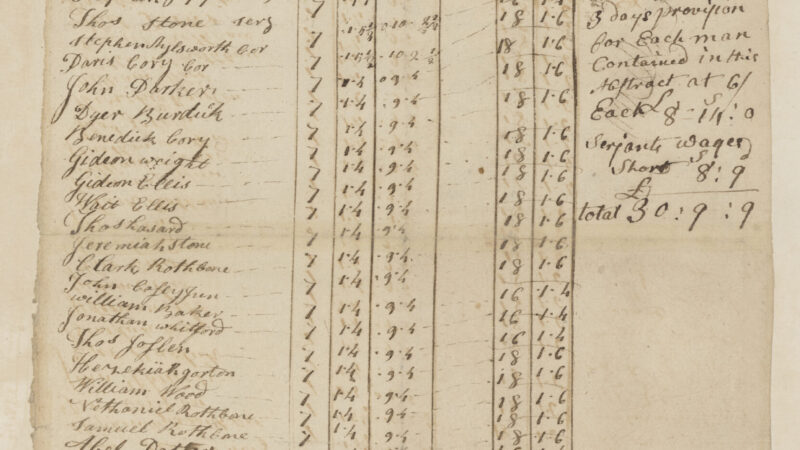 Thos Stone serg 7 18 1.6
Stephen Aylsworth Cor 7 18 1.6
Daris Cory Cor 7 18 1.6
John Parker 7 1.4 9.4 18 1.6
Dyer Burdick 7 1.4 9.4
Benedick Cory 7 1.4 9.4 18 1.6
Gideon wright 7 1.4 9.4 18 1.6
Gideon Ellis 7 1.4 9.4 18 1.6
Wait Ellis 7 1.4 9.4 18 1.6
Thos hasard 7 1.4 9.4 18 1.6
Jeremiah stone 7 1.4 9.4 18 1.6
Clark Rothbone 7 1.4 9.4 18 1.6
John Jun 7 1.4 9.4 16 1.4
william Baker 7 1.4 9.4 16 1.4
Jonathan whitford 7 1.4 9.4 16 1.4
Thos Joslen 7 1.4 9.4 18 1.6
Hezekiah gorton 7 1.4 9.4 18 1.6
William Wood 7 1.4 9.4 18 1.6
Nathaniel Rothbone 7 1.4 9.4 18 1.6
Samuel Rothbone 7 1.4 9.4 18 1.6
Abel
3 days provision
for Each man
Contained in this
Abstract at 6/
Each £ s
8-14:0
Serjants wages
Short s
8:9
£
total 30:9:9